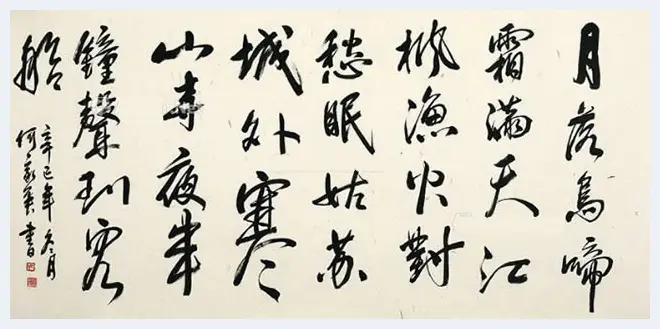 月落烏啼
霜滿天江
枫漁火對
愁眠姑苏
城外寒
山寺夜半
鐘聲到客
船
辛巳年冬月
何家英書